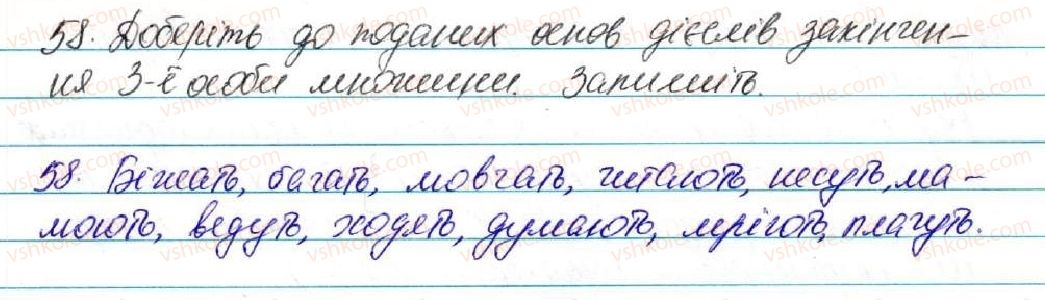 58. Доберіть до поданих основ дієслів закінчен-
ня 3-ї особи множини. Запишіть.
58. Біжать, бачать, мовчать, читають, несуть, ма-
люють, ведуть, ходять, думають, мріють, плачуть.